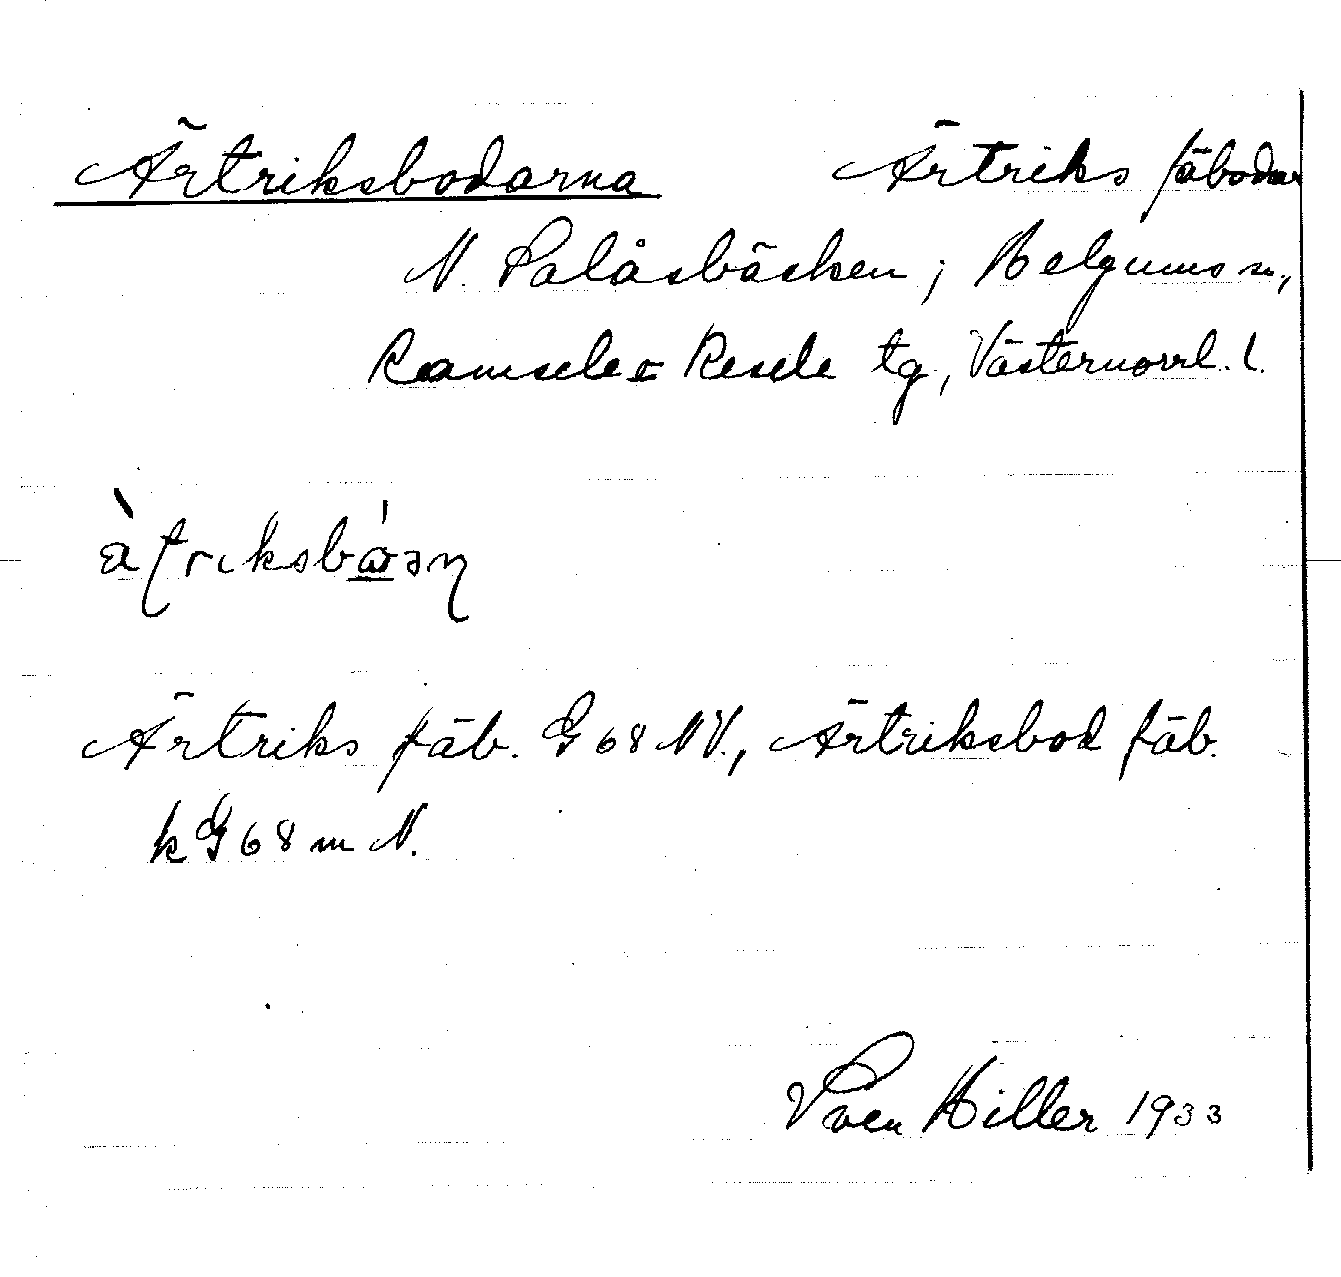 Ärtriksbodarna Ärtriks fäbodar
N. Salåsbäcken; Helgums sn,
Ramsele o Resele tg, Västernorrl. l.
Ärtriks fäb. G 68 NV., Ärtriksbod fäb.
k G 68 m N.
Sven Hiller 1933